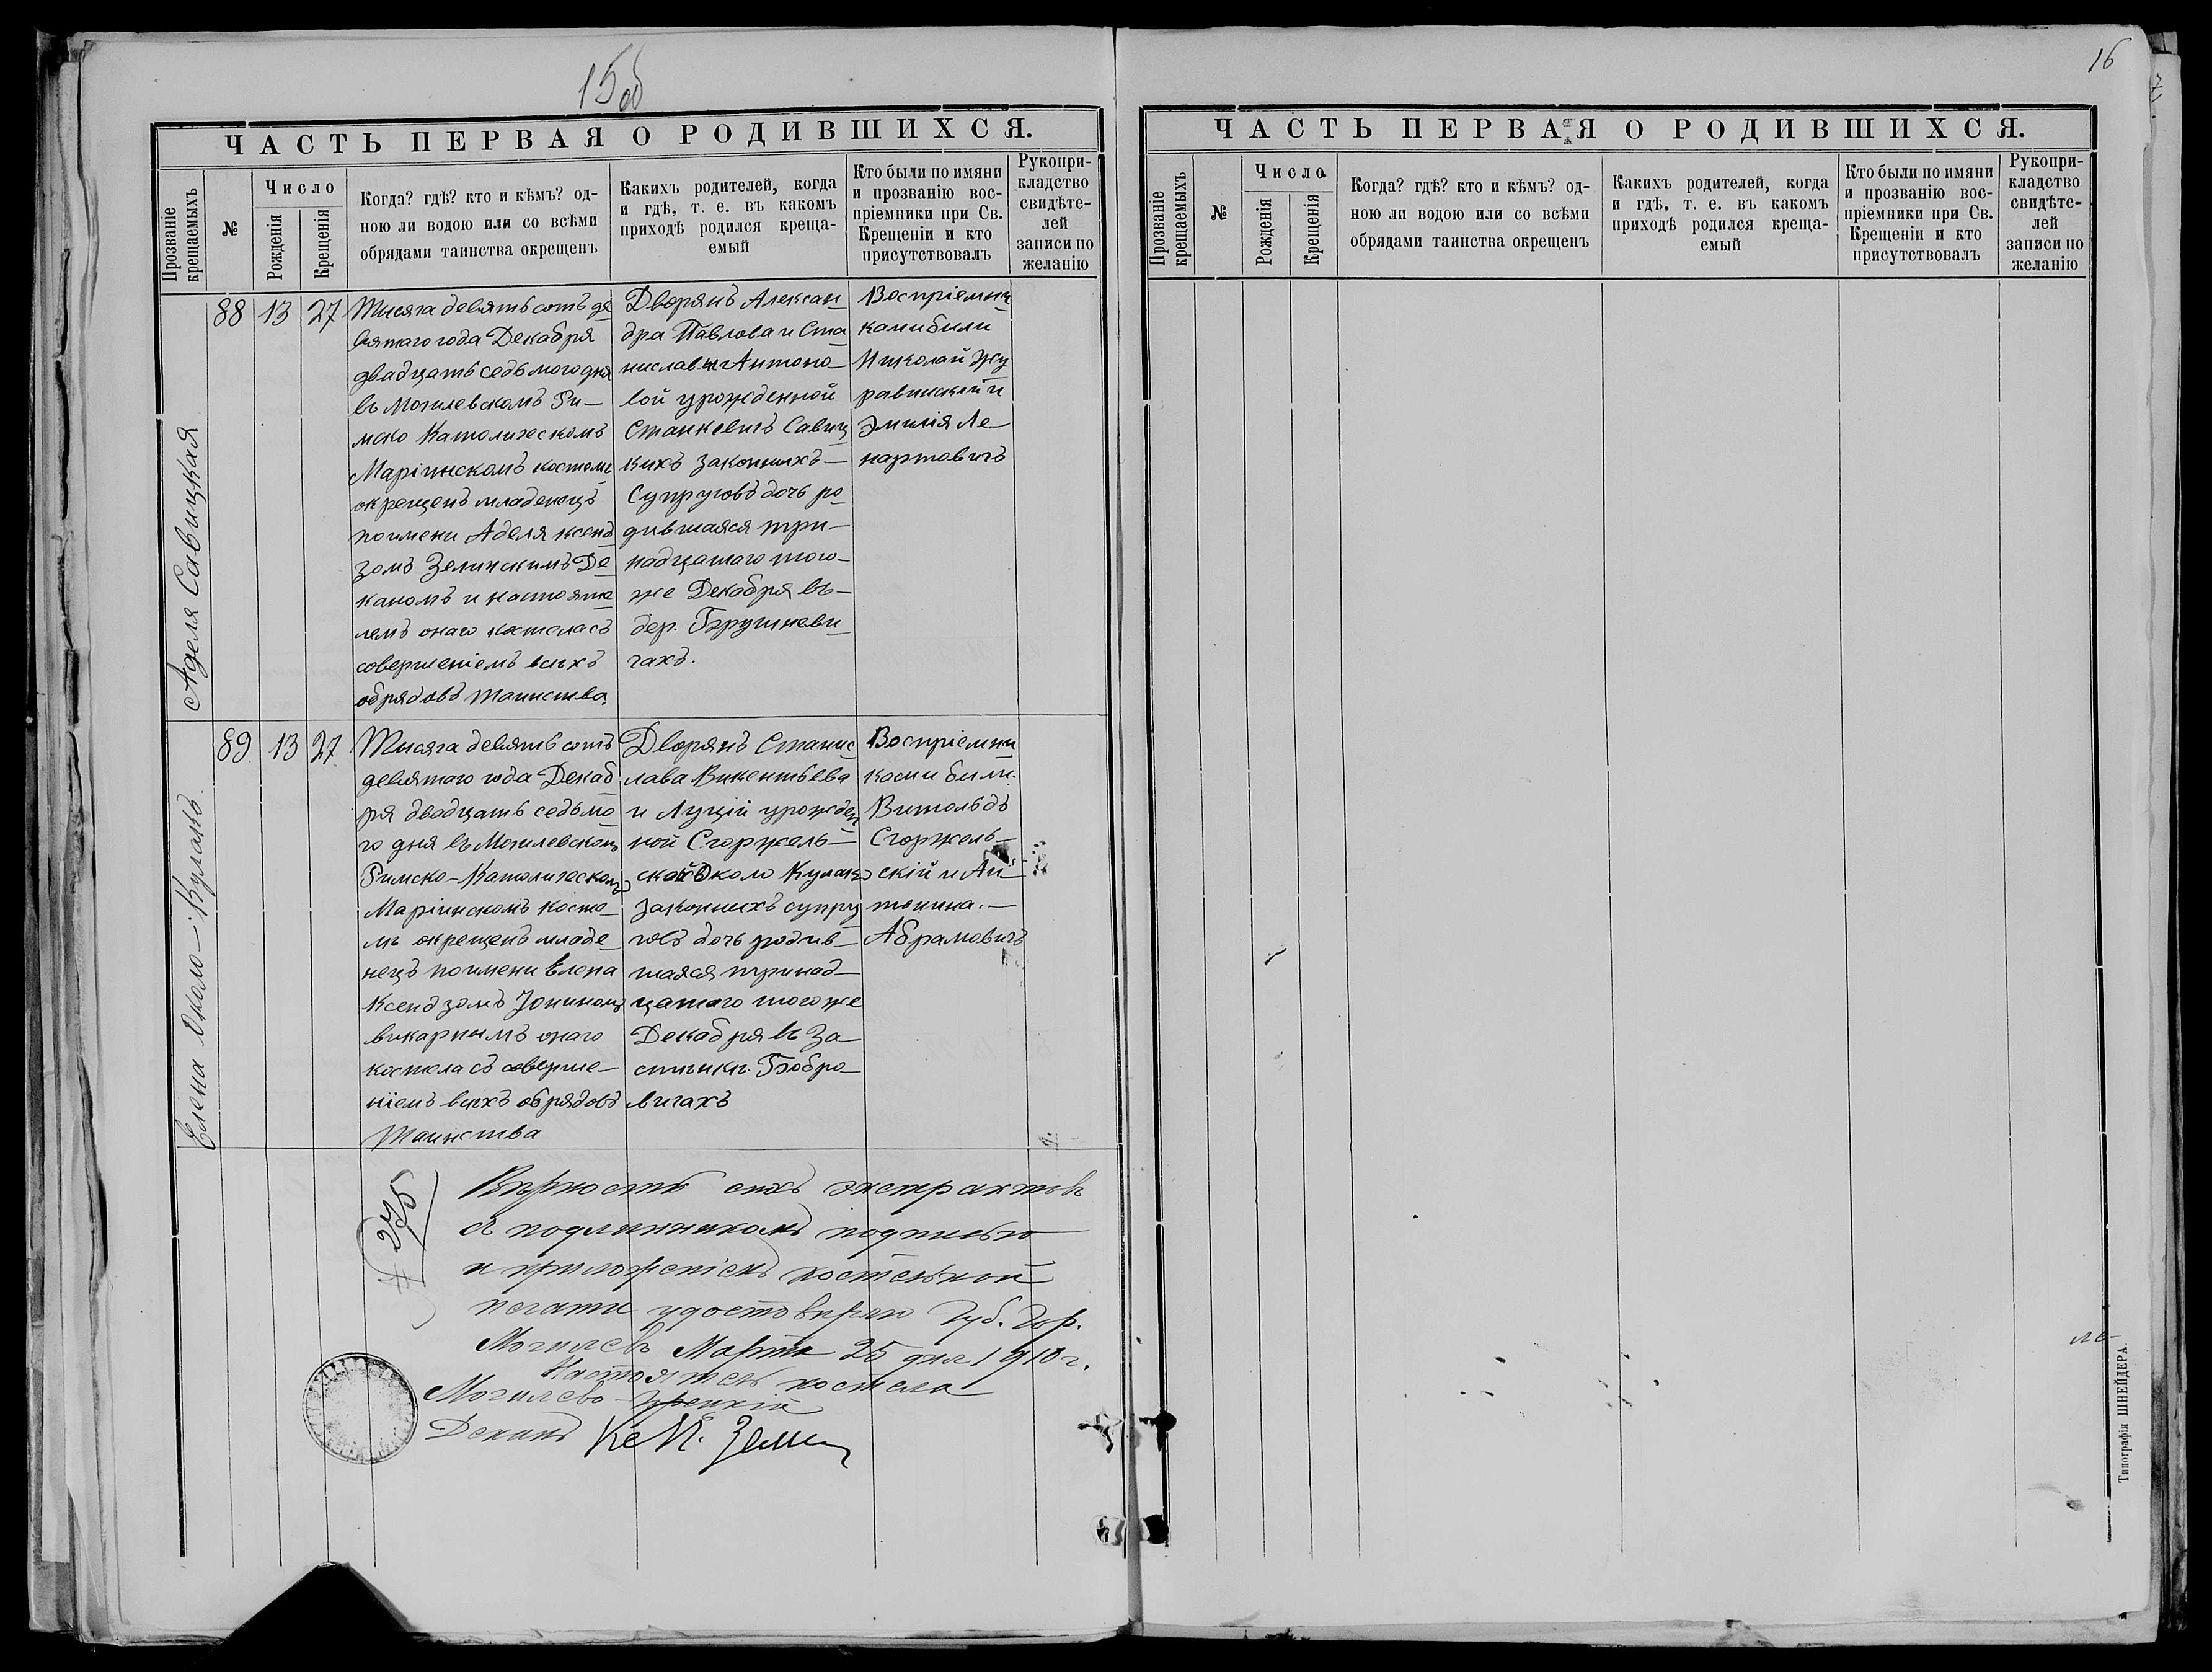 15об
ЧАСТЬ ПЕРВАЯ О РОДИВШИХСЯ.
Прозваніе крещаемыхъ
№
Число
Рожденія
Крещенія
Когда? гдѣ? кто и кѣмъ? од-
ною ли водою или со всѣми
обрядами таинства окрещенъ
Какихъ родителей, когда
и гдѣ, т. е. въ какомъ
приходѣ родился креща-
емый
Кто были по имяни
и прозванію вос-
пріемники при Св.
Крещеніи и кто
присутствовалъ
Рукопри-
кладство
свидѣте-
лей
записи по
желанію
Аделя Савицкая
88
13
27
Тысяча девятьсотъ де
вятаго года Декабря
двадцать седьмого дня
въ Могилевскомъ Ри-
мско Католическомъ
Маріинскомъ костелѣ
окрещенъ младенецъ
по имени Аделя ксенд
зомъ Зелинскимъ Де
каномъ и настояте
лемъ онаго костела съ
совершеніемъ всѣхъ
обрядовъ таинства.
Дворянъ Алексан
дра Павлова и Ста
ниславы Антоно-
вой урожденной
Станкевичъ Савиц
кихъ законныхъ-
Супруговъ дочь ро
дившаяся три-
надцатаго того-
же Декабря въ-
дер. Брушневи
чахъ.
Воспріемни
ками были
Николай Жу
равинскій и
Эмилія Ле-
нартовичъ
Елена Около-Кулакъ
89
13
27
Тысяча девятьсотъ
девятаго года Декаб
ря двадцать седьмо
го дня въ Могилевскомъ
Римско-Католическомъ
Маріинскомъ косте-
лѣ окрещенъ младе-
нецъ по имени Елена
Ксендзомъ
викарнымъ онаго
костела съ соверше-
ніемъ всѣхъ обрядовъ
Таинства
Дворянъ Станис
лава Викентьева
и Луціи урожден
ной Сгоржель-
ской Около Кулакъ
законныхъ супру
говъ дочь родив-
шаяся тринад-
цатаго того же
Декабря въ За-
стѣнкѣ Бобро-
вичахъ
Воспріемни
ками были.
Витольдъ
Сгоржель-
скій и Ан-
тонина.-
Абрамовичъ
№ 275
Вѣрность сихъ экстрактовъ
съ подлинникомъ подписью
и приложеніемъ костельной
печати удостовѣряю Губ. Гор.
Могилевъ Марта 25 дня 1910 г.
Настоятель костела
Могилево-
Деканъ
16
ЧАСТЬ ПЕРВАЯ О РОДИВШИХСЯ.
Прозваніе крещаемыхъ
№
Число
Рожденія
Крещенія
Когда? гдѣ? кто и кѣмъ? од-
ною ли водою или со всѣми
обрядами таинства окрещенъ
Какихъ родителей, когда
и гдѣ, т. е. въ какомъ
приходѣ родился креща-
емый
Кто были по имяни
и прозванію вос-
пріемники при Св.
Крещеніи и кто
присутствовалъ
Рукопри-
кладство
свидѣте-
лей
записи по
желанію
Типографія ШНЕЙДЕРА.